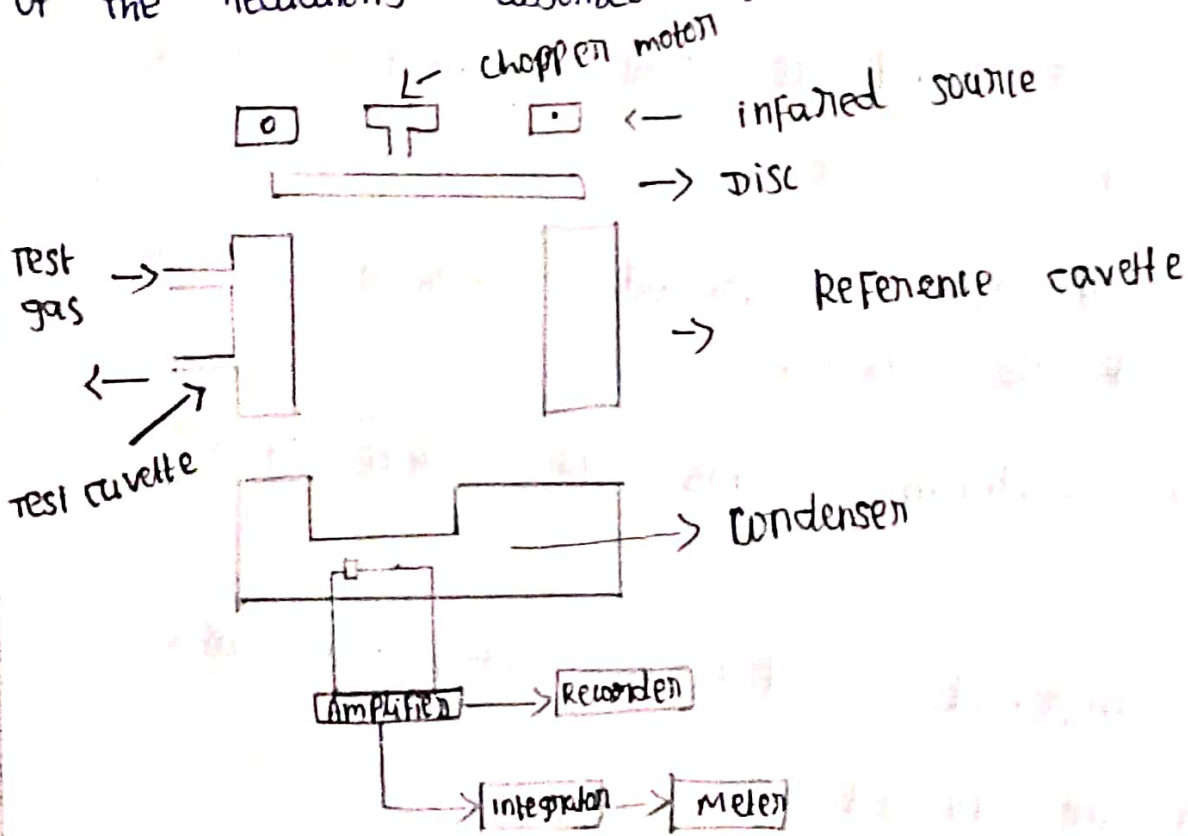 of the
chopper motor
infared source
Disc
Test
gas
Reference cavette
Test cuvette
Condenser
Amplifier
Recorder
integrator
Meter